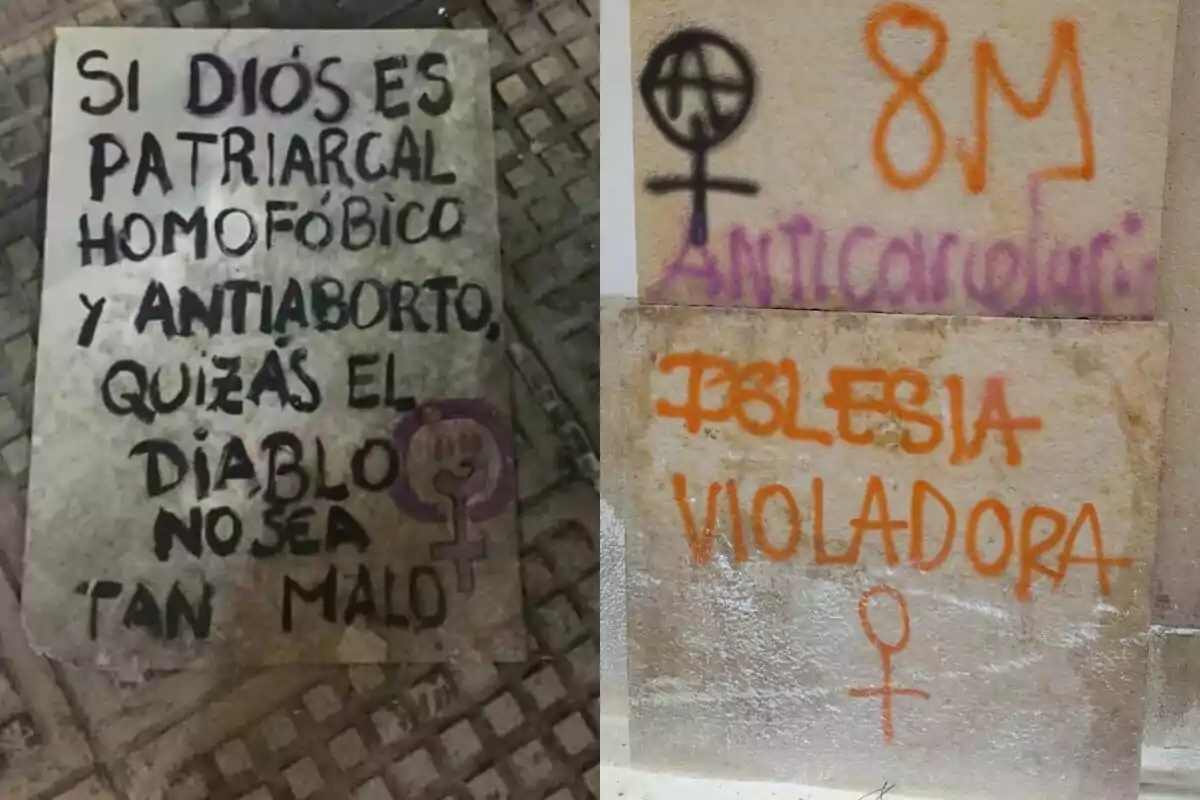 SI DIÓS ES
PATRIARCAL
HOMOFÓBICO
Y ANTIABORTO,
QUIZÁS EL
DIABLO
NO SEA
TAN MALO
8M
IGLESIA
VIOLADORA